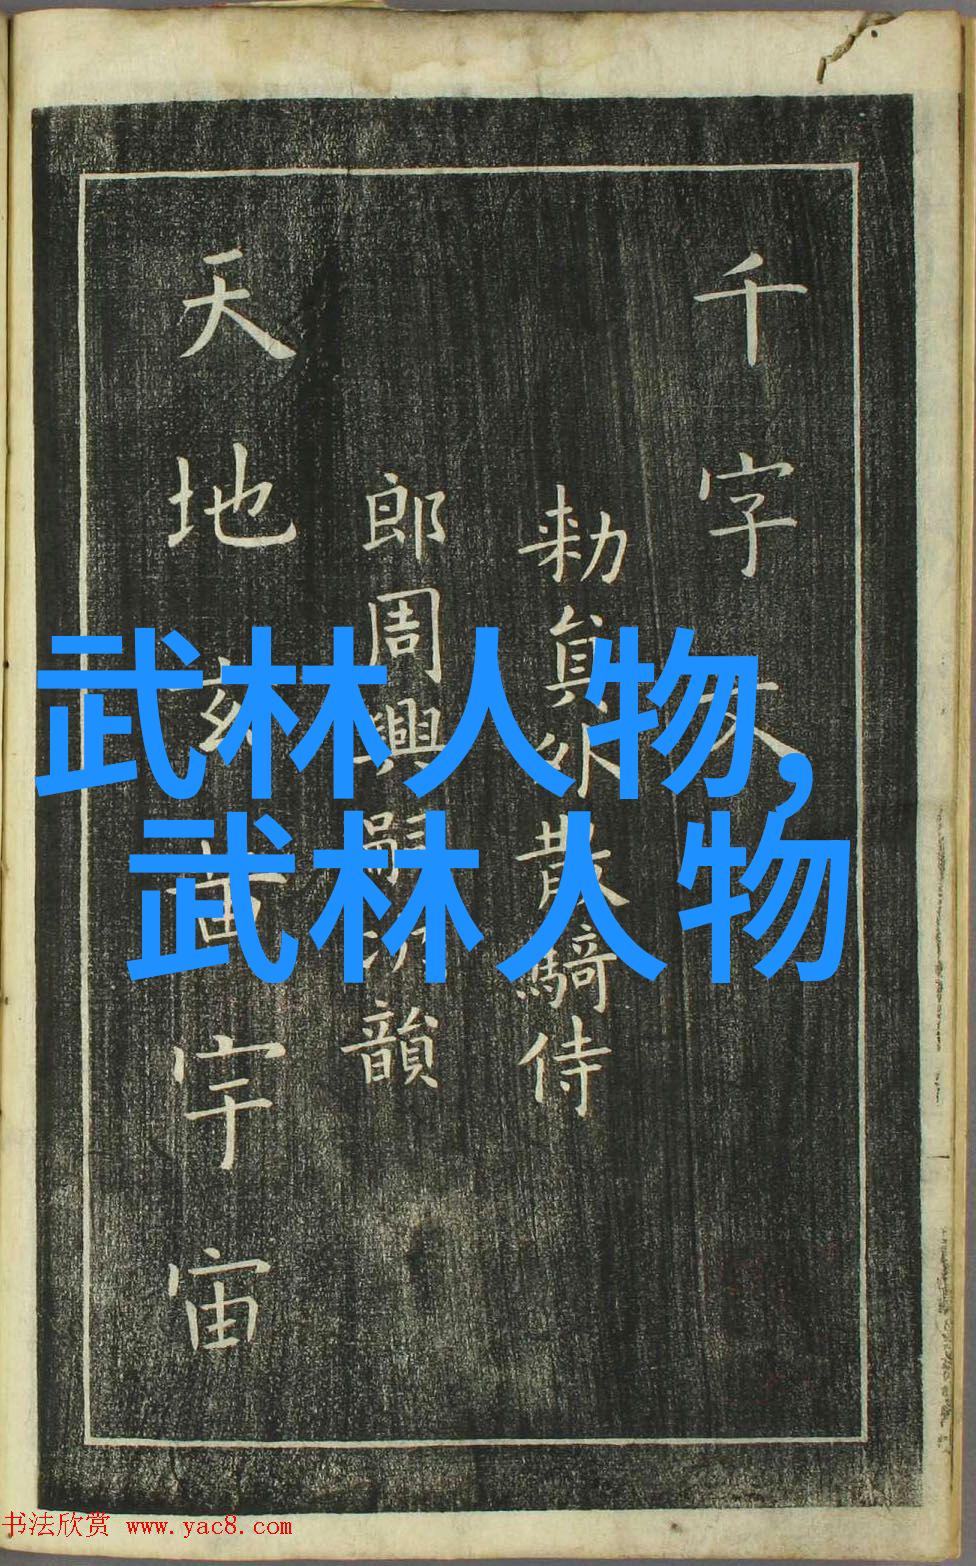 千字文
勑員外散騎侍
郎周興嗣次韻
天地玄黃宇宙
武林人物,
武林人物
书法欣赏 www.yac8.com